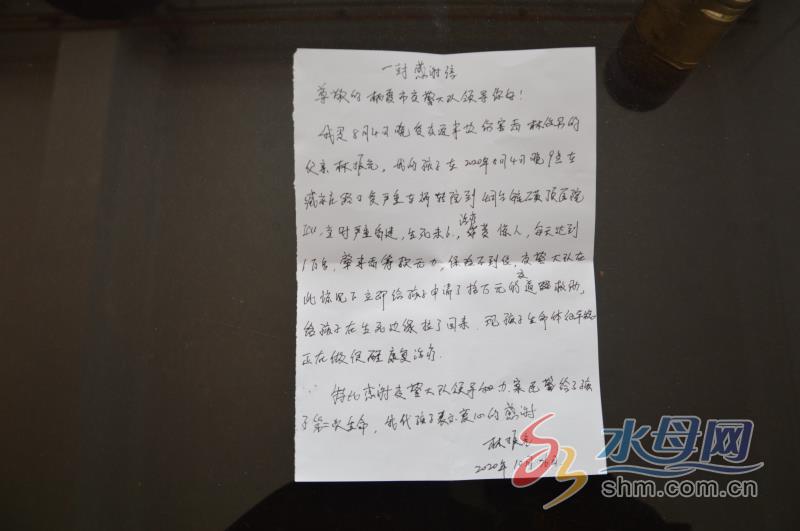 一封感谢信
尊敬的栖霞市交警大队领导你好！
我是8月4日晚受交通事故伤害者林
父亲林振元，我的孩子在2020年8月4日晚9点在
路口受严重车祸转院到烟台毓璜顶医院
ICU，立时严重昏迷，生死未卜，治疗费惊人，每天达到
1万多，肇事者筹款无力，保险不到位，交警大队在
此情况下立即给孩子申请了拾万元的道交路救助，
给孩子在生死边缘拉了回来。现孩子生命体征平稳
正在做促醒康复治疗。
特此感谢交警大队领导和办案民警给了孩
子第二次生命，我代孩子表示衷心的感谢
林振元
2020年10月26日
水母网
shm.com.cn